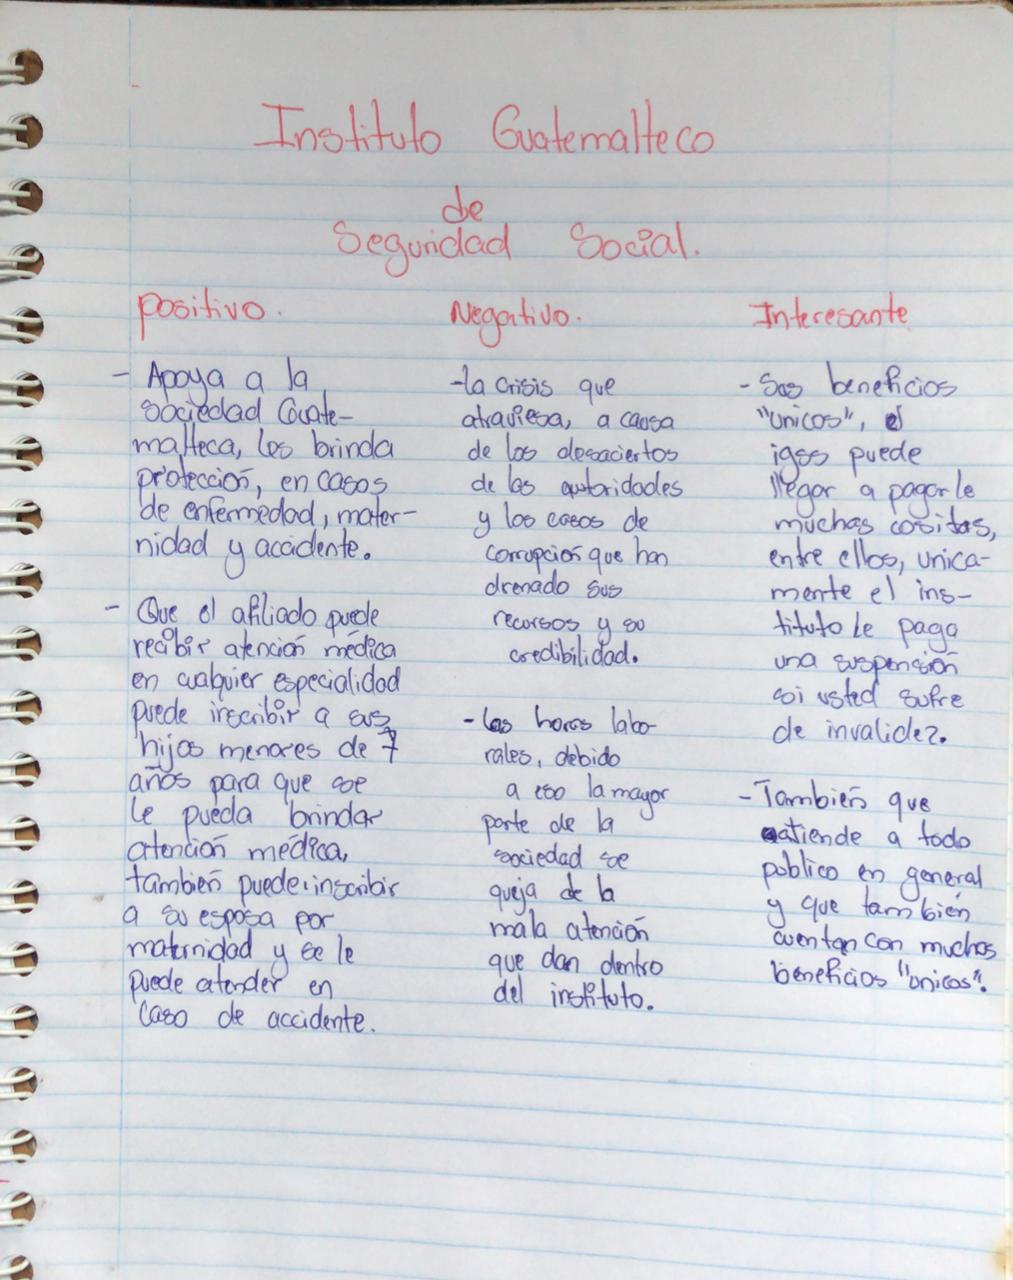 Instituto Guatemalteco
de
Seguridad Social.
positivo.
- Apoya a la
sociedad Guate-
malteca, les brinda
protección, en casos
de enfermedad, mater-
nidad y accidente.
- Que el afiliado puede
recibir atención médica
en cualquier especialidad
puede inscribir a sus
hijos menores de 7
años para que se
le pueda brindar
atención médica,
también puede inscribir
a su esposa por
maternidad y se le
puede atender en
caso de accidente.
Negativo.
-la crisis que
atraviesa, a causa
de los desaciertos
de las autoridades
y los casos de
corrupción que han
drenado sus
recursos y su
credibilidad.
- Las horas labo-
rales, debido
a eso la mayor
parte de la
sociedad se
queja de la
mala atención
que dan dentro
del instituto.
Interesante
- Sus beneficios
"unicos", el
igss puede
llegar a pagarle
muchas cositas,
entre ellos, unica-
mente el ins-
tituto le paga
una suspensión
si usted sufre
de invalidez.
- También que
atiende a todo
publico en general
y que también
cuentan con muchos
beneficios "unicos".